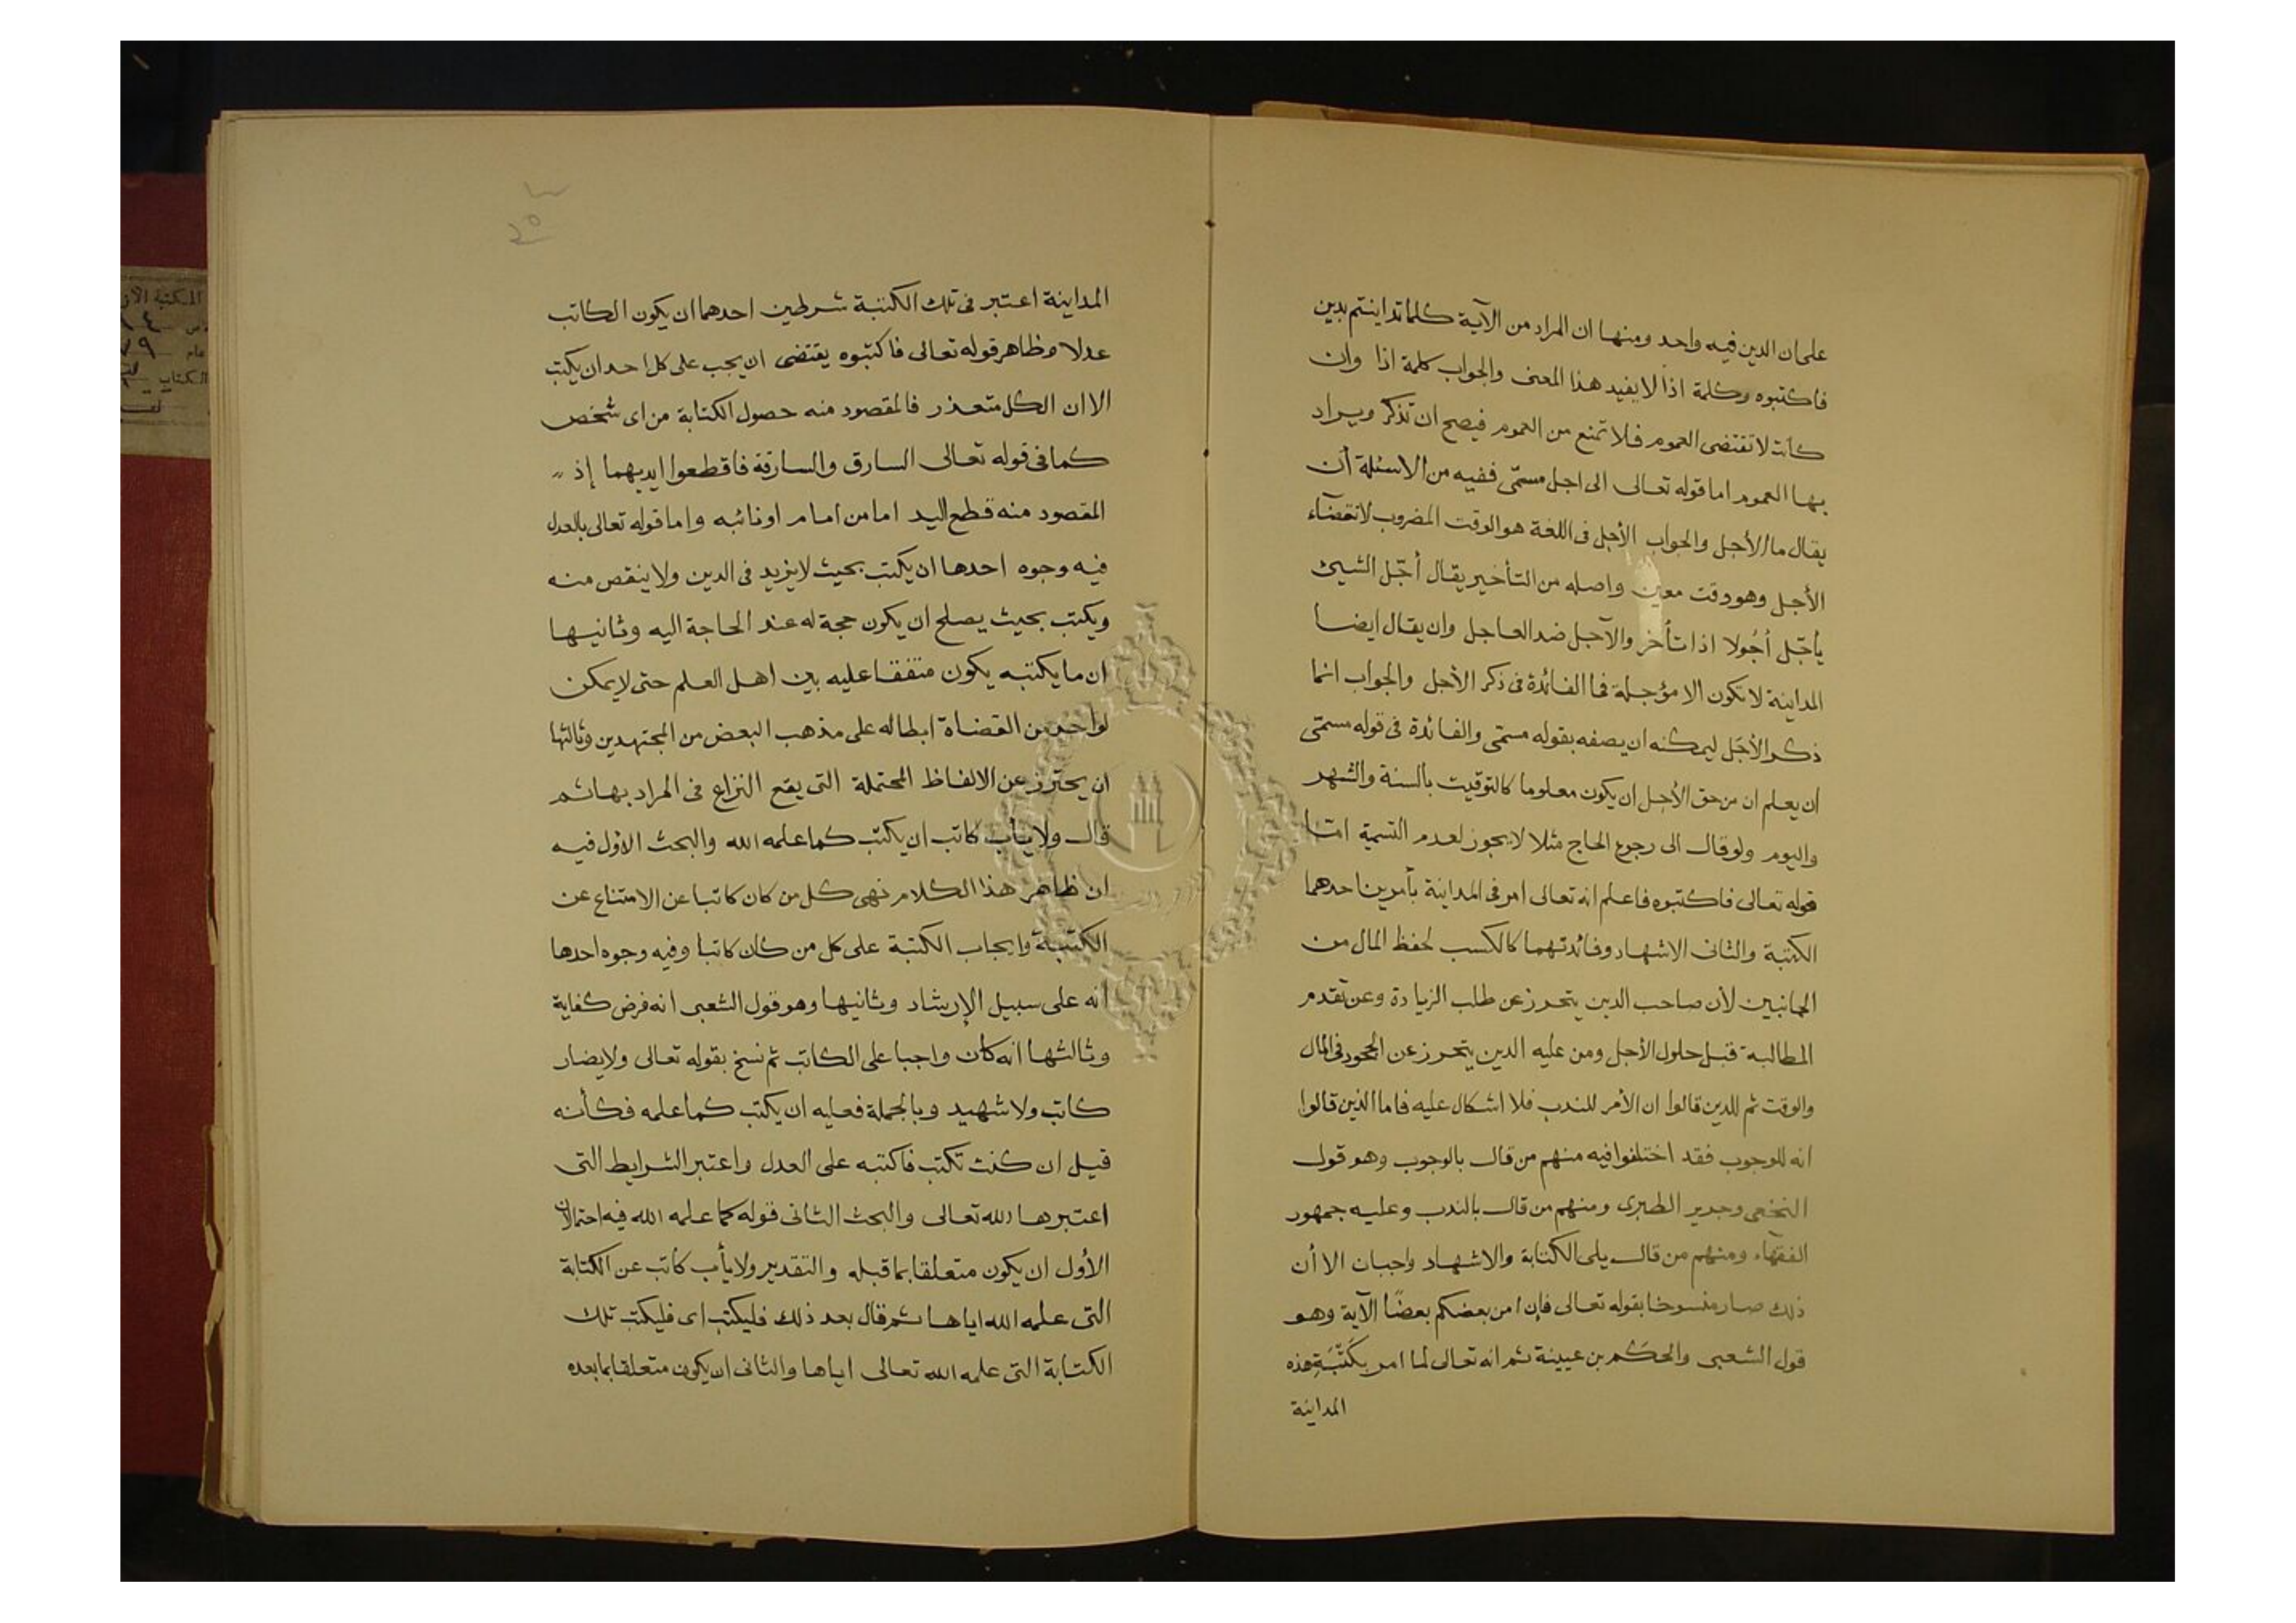 على ان الدين فيه واحد ومنها ان المراد من الآية كلما تداينتم بدين
فاكتبوه وكلمة اذا لا يفيد هذا المعنى والجواب كلمة اذا وان
كانت لا تقتضى العموم فلا تمنع من العموم فيصح ان تذكر ويراد
بها العموم اما قوله تعالى الى اجل مسمّى ففيه من الاسئلة أن
يقال ما الأجل والجواب الأجل فى اللغة هو الوقت المضروب لانقضآء
الأجل وهو وقت معين واصله من التأخير يقال أجّل الشيئ
يأجّل أجُولا اذا تأخر والآجل ضد العاجل وان يقال ايضا
المداينة لا تكون الا مؤجلة فما الفائدة فى ذكر الأجل والجواب انما
ذكر الأجَل ليمكنه ان يصفه بقوله مسمّى والفائدة فى قوله مسمّى
ان يعلم ان من حق الأجل ان يكون معلوما كالتوقيت بالسنة والشهر
واليوم ولو قال الى رجوع الحاج مثلا لا يجوز لعدم التسمية امّا
قوله تعالى فاكتبوه فاعلم انه تعالى امر فى المداينة بأمرين احدهما
الكتبة والثانى الاشهاد وفائدتهما كالكسب لحفظ المال من
الجانبين لأن صاحب الدين يتحرز عن طلب الزيادة وعن تقدم
المطالبة قبل حلول الأجل ومن عليه الدين يتحرز عن الجحود فى المال
والوقت ثم للدين قالوا ان الأمر للندب فلا اشكال عليه فاما الذين قالوا
انه للوجوب فقد اختلفوا فيه منهم من قال بالوجوب وهو قول
النخعى وجدير الطبرى ومنهم من قال بالندب وعليه جمهور
الفقهآء ومنهم من قال يلى الكتابة والاشهاد واجبان الا أن
ذلك صار منسوخا بقوله تعالى فإن امن بعضكم بعضًا الآية وهو
قول الشعبى والحكم بن عيينة ثم انه تعالى لما امر بكَتْبَةِ هذه
المداينة
المداينة اعتبر فى تلك الكتبة شرطين احدهما ان يكون الكاتب
عدلا وظاهر قوله تعالى فاكتبوه يقتضى ان يجب على كل احد ان يكتب
الا ان الكل متعذر فالمقصود منه حصول الكتابة من اى شخص
كما فى قوله تعالى السارق والسارقة فاقطعوا ايديهما إذ
المقصود منه قطع اليد اما من امام او نائبه واما قوله تعالى بالعدل
فيه وجوه احدها ان يكتب بحيث لا يزيد فى الدين ولا ينقص منه
ويكتب بحيث يصلح ان يكون حجة له عند الحاجة اليه وثانيها
ان ما يكتبه يكون متفقا عليه بين اهل العلم حتى لا يمكن
لواحد من القضاة ابطاله على مذهب البعض من المجتهدين وثالثها
ان يحترز عن الالفاظ المحتملة التى يقع النزاع فى المراد بها ثم
قال ولا يأب كاتب ان يكتب كما علمه الله والبحث الاول فيه
ان ظاهر هذا الكلام نهى كل من كان كاتبا عن الامتناع عن
الكتبة وايجاب الكتبة على كل من كان كاتبا وفيه وجوه احدها
انه على سبيل الإرشاد وثانيها وهو قول الشعبى انه فرض كفاية
وثالثها انه كان واجبا على الكاتب ثم نسخ بقوله تعالى ولا يضار
كاتب ولا شهيد وبالجملة فعليه ان يكتب كما علمه فكأنه
قيل ان كنت تكتب فاكتبه على العدل واعتبر الشرايط التى
اعتبرها الله تعالى والبحث الثانى قوله كما علمه الله فيه احتمالان
الأول ان يكون متعلقا بما قبله والتقدير ولا يأب كاتب عن الكتابة
التى علمه الله اياها ثم قال بعد ذلك فليكتب اى فليكتب تلك
الكتابة التى علمه الله تعالى اياها والثانى ان يكون متعلقا بما بعده